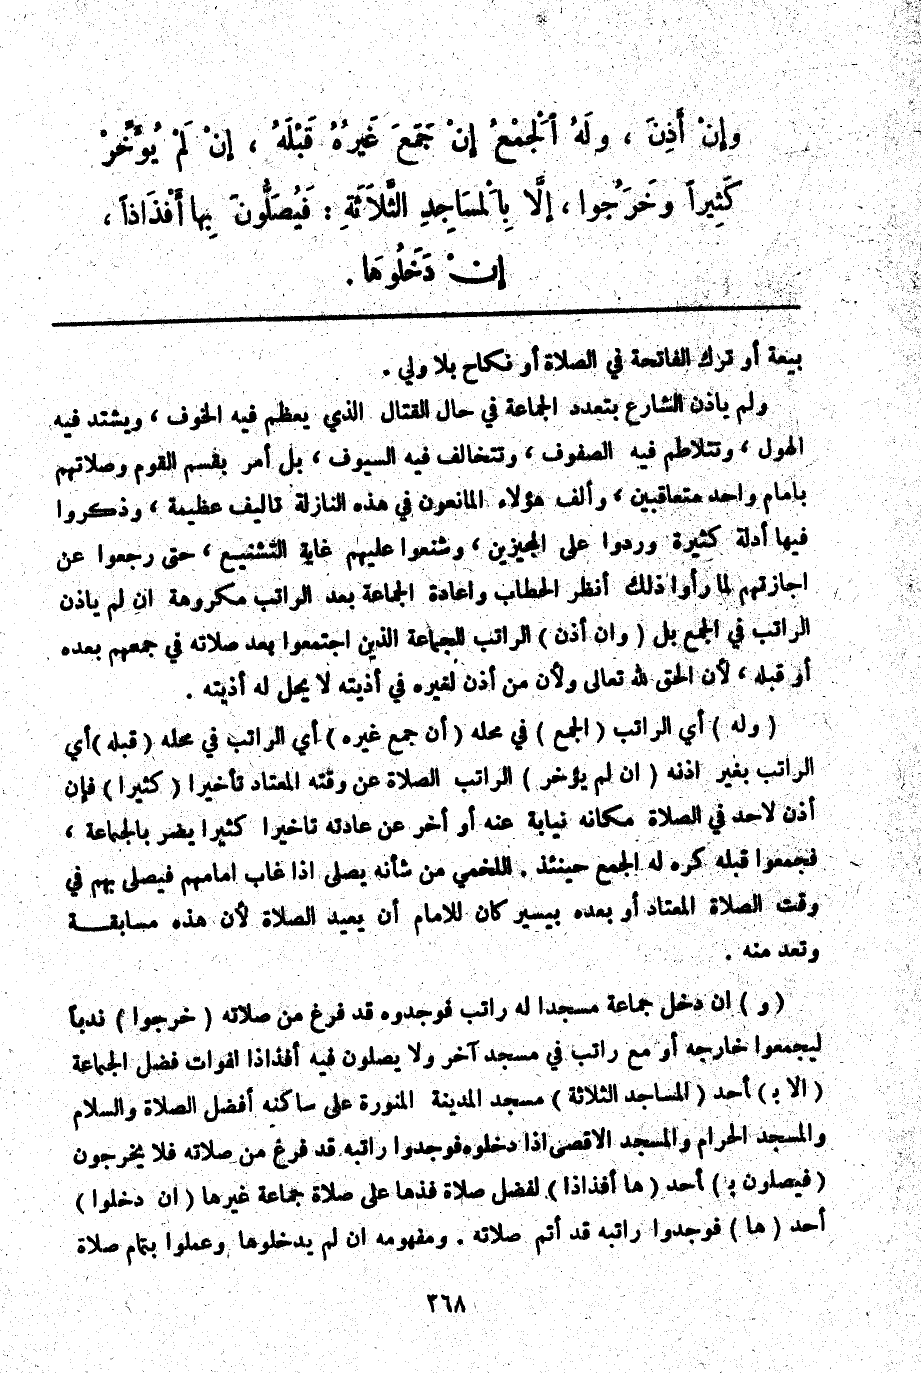 وإنْ أَذِنَ ، ولَهُ ٱلْجمْعُ إنْ جَمَعَ غَيرُهُ قَبْلَهُ ، إنْ لَمْ يُوَّخِّرْ
كَثِيراً وخَرَجُوا ، إلَّا بِالْمسَاجِدِ الثَّلاَثَةِ : فَيُصَلُّونَ بِها أَفْذَاذاً ،
إنْ دَخَلُوهَا .
بيعة أو ترك الفاتحة في الصلاة أو نكاح بلا ولي .
ولم ياذن الشارع بتعدد الجماعة في حال القتال الذي يعظم فيه الخوف ، ويشتد فيه
الهول ، وتتلاطم فيه الصفوف ، وتتخالف فيه السيوف ، بل أمر بقسم القوم وصلاتهم
بامام واحد متعاقبين ، وألف هؤلاء المانعون في هذه النازلة تاليف عظيمة ، وذكروا
فيها أدلة كثيرة وردوا على المجيزين ، وشنعوا عليهم غاية التشنيع ، حتى رجعوا عن
اجازتهم لما رأوا ذلك أنظر الحطاب واعادة الجماعة بعد الراتب مكروهة ان لم ياذن
الراتب في الجمع بل ( وان أذن ) الراتب للجماعة الذين اجتمعوا بعد صلاته في جمعهم بعده
أو قبله ، لأن الحق لله تعالى ولأن من أذن لغيره في أذيته لا يحل له أذيته .
( وله ) أي الراتب ( الجمع ) في محله ( أن جمع غيره ) أي الراتب في محله ( قبله ) أي
الراتب بغير اذنه ( ان لم يؤخر ) الراتب الصلاة عن وقته المعتاد تأخيرا ( كثيرا ) فإن
أذن لاحد في الصلاة مكانه نيابة عنه أو أخر عن عادته تاخيرا كثيرا يضر بالجماعة ،
فجمعوا قبله كره له الجمع حينئذ . اللخمي من شأنه يصلى اذا غاب امامهم فيصلى بهم في
وقت الصلاة المعتاد أو بعده بيسير كان للامام أن يعيد الصلاة لأن هذه مسابقة
وتعد منه .
( و ) ان دخل جماعة مسجدا له راتب فوجدوه قد فرغ من صلاته ( خرجوا ) ندباً
ليجمعوا خارجه أو مع راتب في مسجد آخر ولا يصلون فيه أفذاذا لفوات فضل الجماعة
( الا بـ ) أحد ( المساجد الثلاثة ) مسجد المدينة المنورة على ساكنه أفضل الصلاة والسلام
والمسجد الحرام والمسجد الاقصى اذا دخلوه فوجدوا راتبه قد فرغ من صلاته فلا يخرجون
( فيصلون بـ ) أحد ( ها أفذاذا ) لفضل صلاة فذها على صلاة جماعة غيرها ( ان دخلوا )
أحد ( ها ) فوجدوا راتبه قد أتم صلاته . ومفهومه ان لم يدخلوها وعملوا بتمام صلاة
٣٦٨